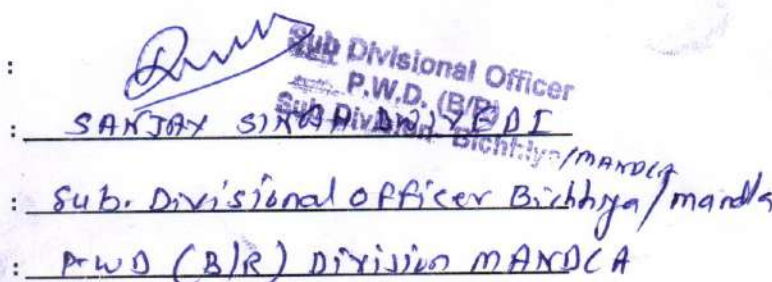 :
Sub Divisional Officer
P.W.D. (B/R)
Sub Division Bichhiya/MANDLA
: SANJAY SINGH DWIVEDI
: Sub. Divisional officer Bichhiya/mandla
: PWD (B/R) Division MANDLA